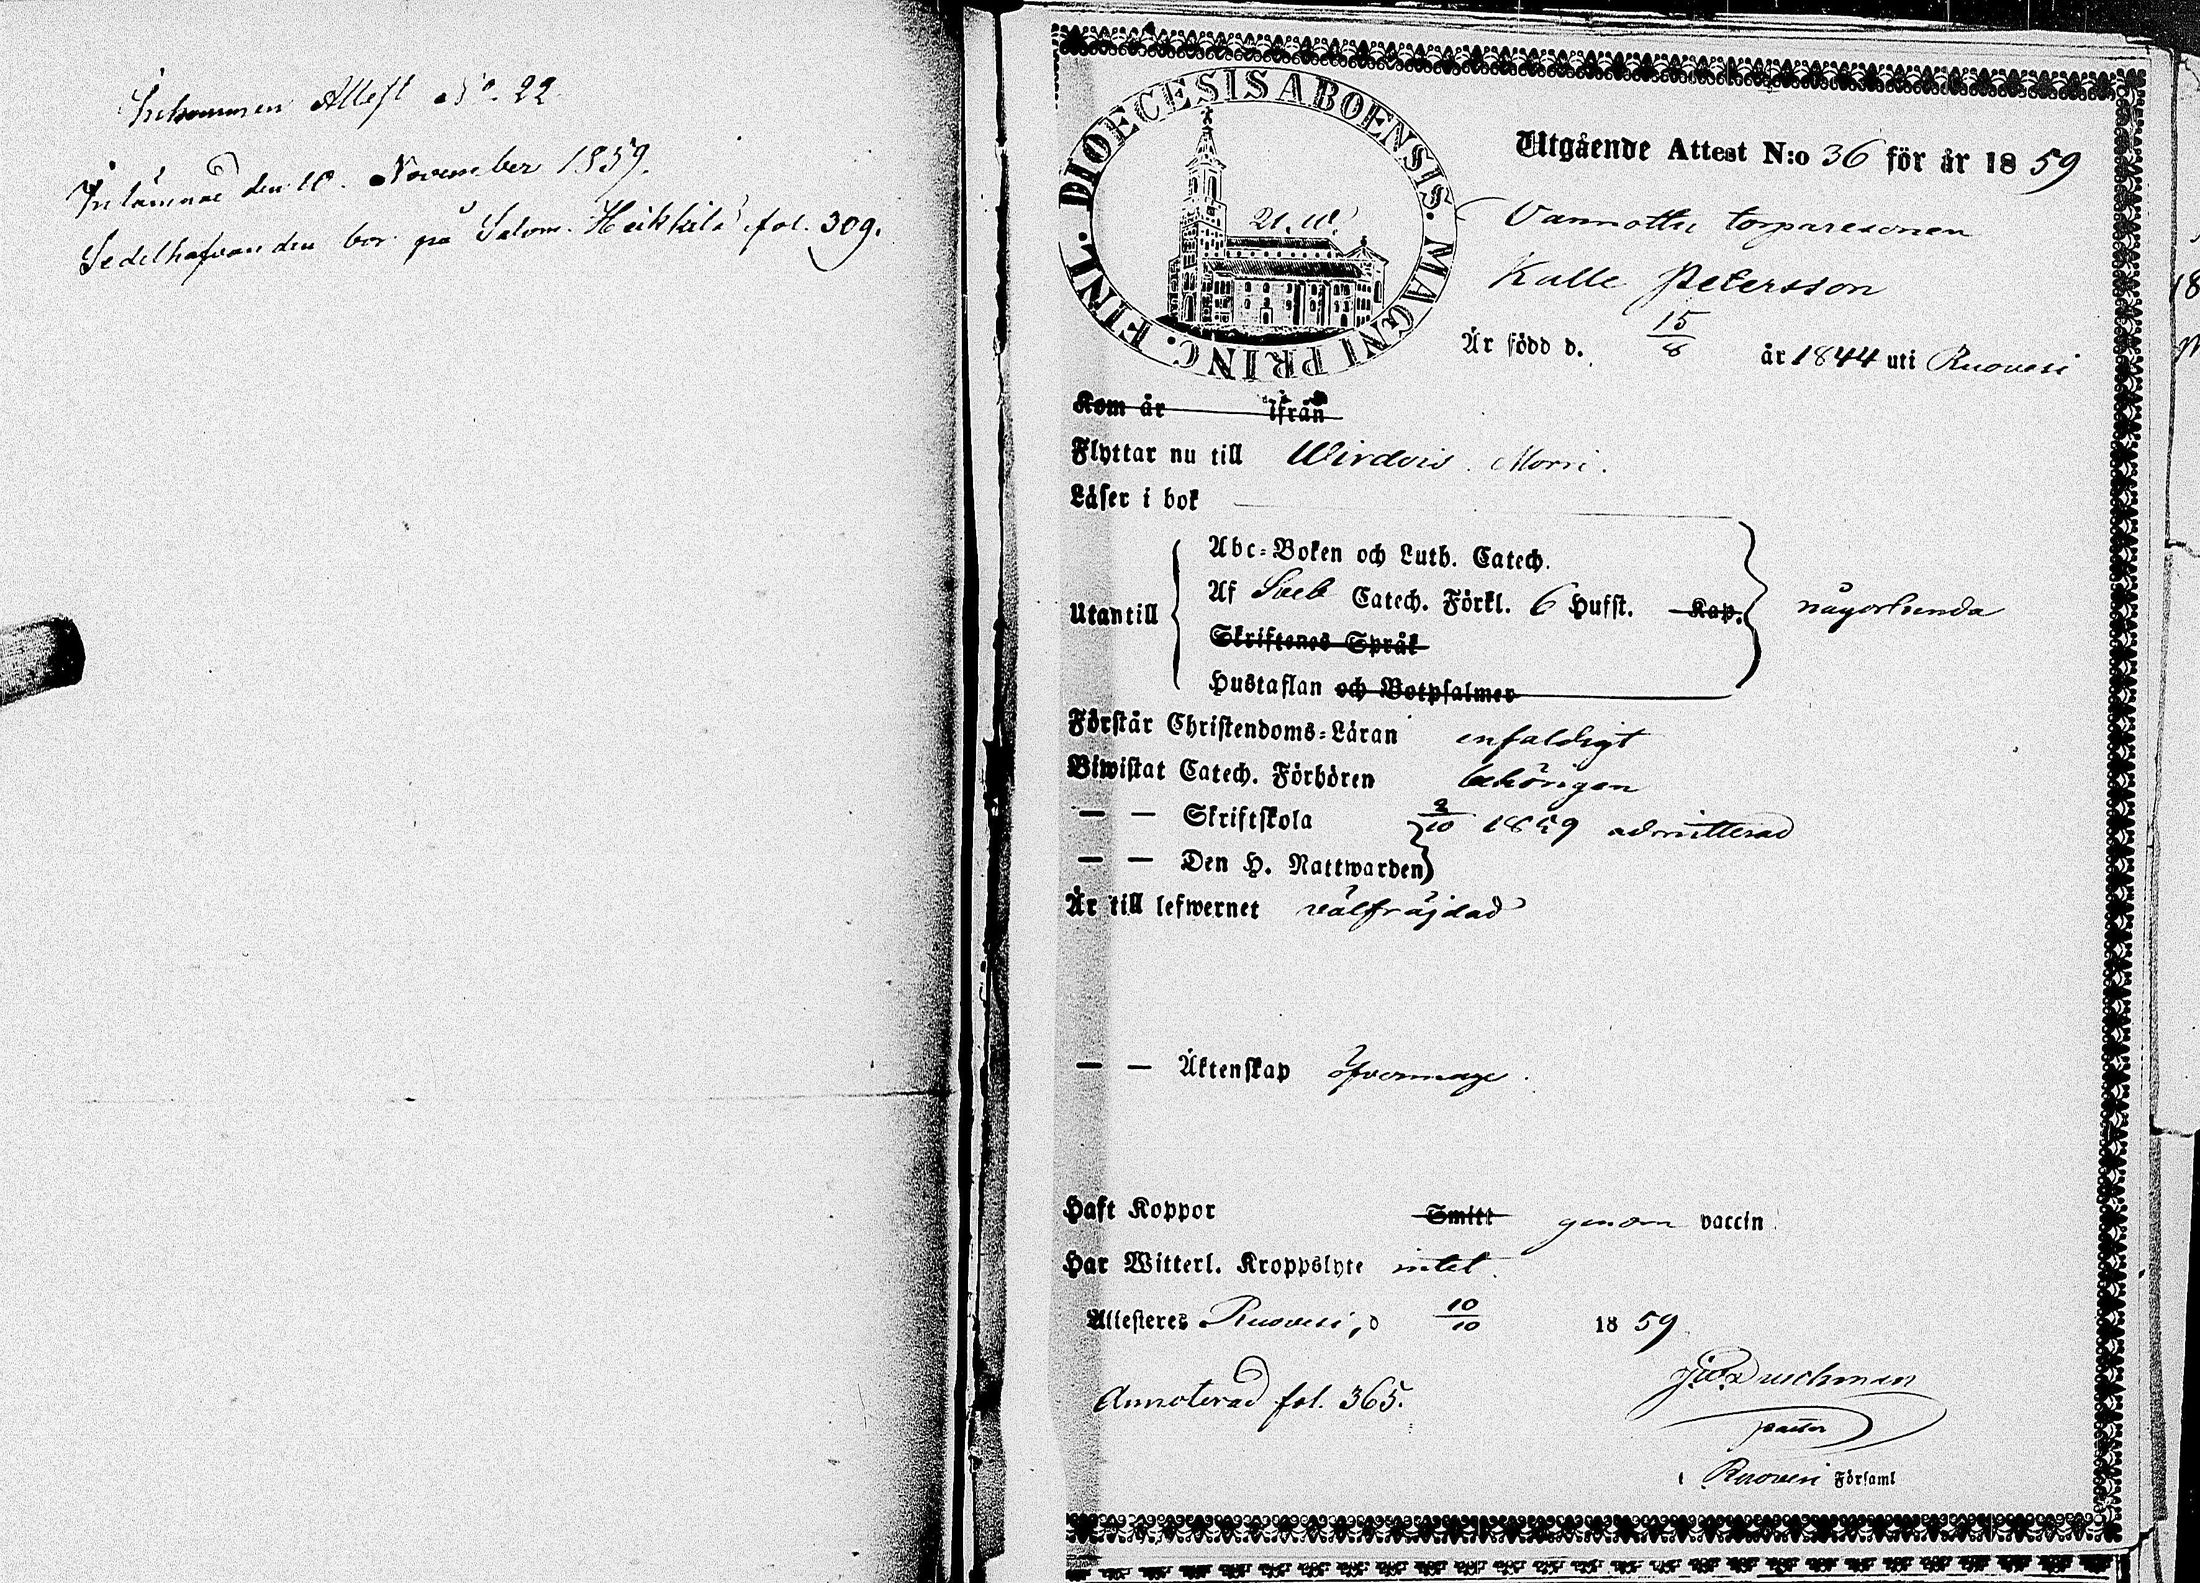 Inkommen Attest No. 22
Inlämnad den 10. November 1859.
Sedelhafvanden bor på Salom. Heikkilä fol. 309.
DIOECESIS ABOENSIS. MAGNI PRINC. FINL.
Utgående Attest N:o 36 för år 1859
torparesonen
Kalle Petersson
Är född d. 15/8 år 1844 uti Ruovesi
Kom år ifrån
Flyttar nu till Wirdois. Morri.
Läser i bok
Abc-Boken och Luth. Catech.
Af Sveb Catech. Förkl. 6 Hufst. Kap.
Utantill någorlunda
Skriftenes Språk
Hustaflan och Botpsalmer
Förstår Christendoms-Läran enfaldigt
Biwistat Catech. Förhören behörigen
— — Skriftskola 2/10 1859 admitterad
— — Den H. Nattwarden
Är till lefwernet välfräjdad
— — Äktenskap
Haft Koppor Smitt genom vaccin
Har Witterl. Kroppslyte intet
Attesteres Ruovesi, d 10/10 1859
Annoterad fol. 365.
pastor
i Ruovesi Församl